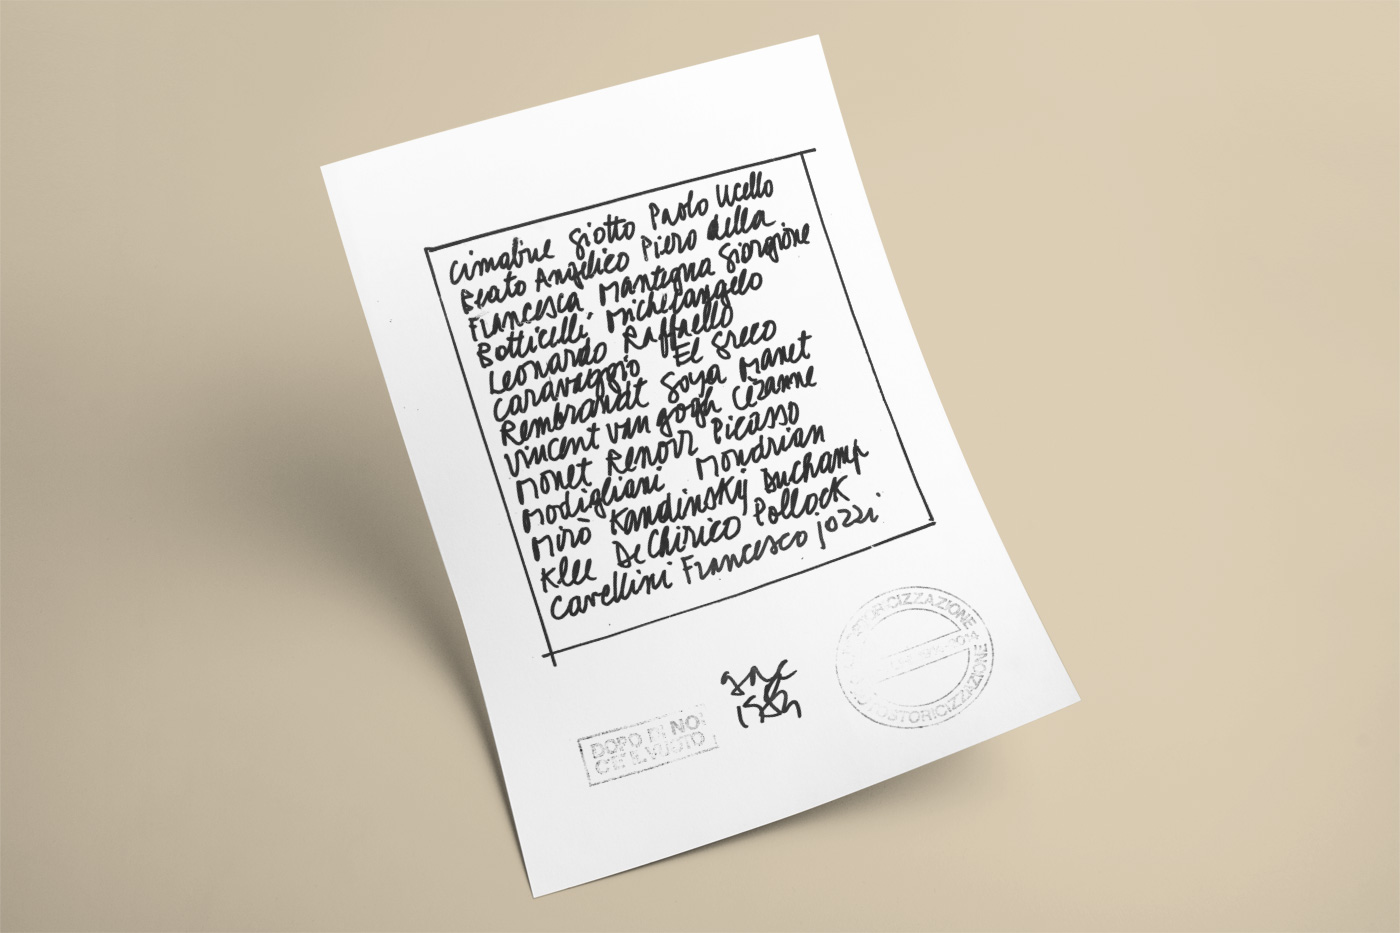 cimabue giotto Paolo Ucello
Beato Angelico Piero della
Francesca Mantegna Giorgione
Botticelli Michelangelo
Leonardo Raffaello
Caravaggio El Greco
Rembrandt Goya Manet
Vincent van gogh Cezanne
Monet Renoir Picasso
Modigliani Mondrian
Mirò Kandinsky Duchamp
Klee De Chirico Pollock
Cavellini Francesco Jozzi
gac
DOPO DI NOI
C'E' IL VUOTO
AUTOSTORICIZZAZIONE
AUTOSTORICIZZAZIONE